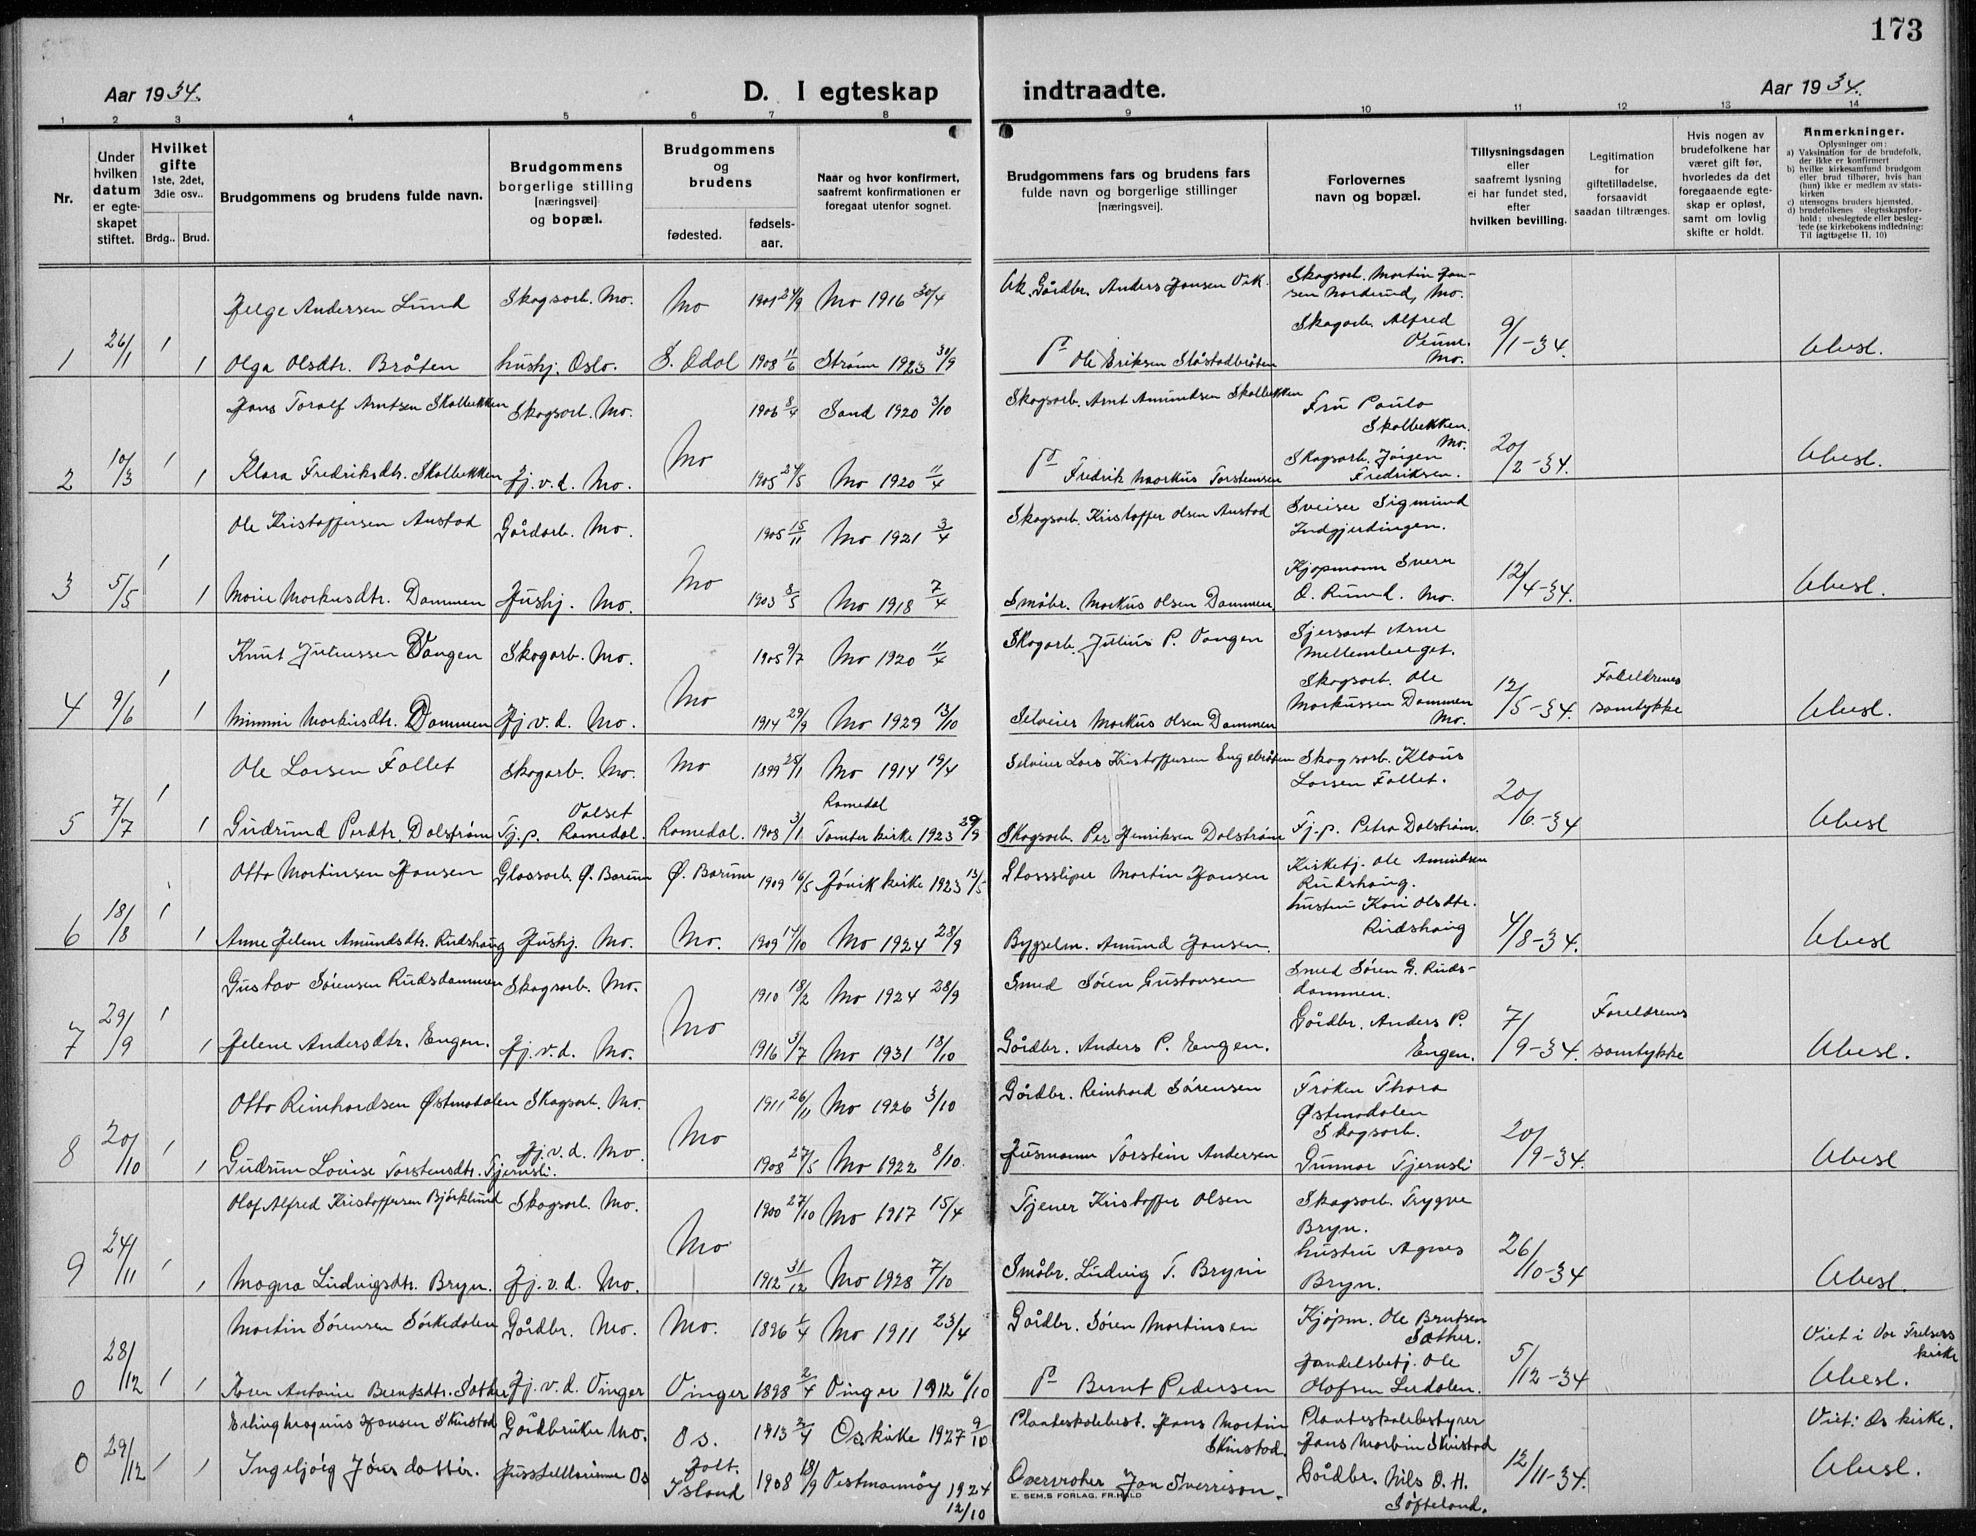 173
Aar 1934.
D. I egteskap indtraadte.
Aar 1934.
1 2 3 4 5 6 7 8 9 10 11 12 13 14
Nr.
Under hvilken datum er egteskapet stiftet.
Hvilket gifte
1ste, 2det, 3die osv..
Brdg.. Brud.
Brudgommens og brudens fulde navn.
Brudgommens borgerlige stilling [næringsvei] og bopæl.
Brudgommens og brudens
fødested.
fødsels-aar.
Naar og hvor konfirmert, saafremt konfirmationen er foregaat utenfor sognet.
Brudgommens fars og brudens fars fulde navn og borgerlige stillinger [næringsvei].
Forlovernes navn og bopæl.
Tillysningsdagen eller saafremt lysning ei har fundet sted, efter hvilken bevilling.
Legitimation for giftetilladelse, forsaavidt saadan tiltrænges.
Hvis nogen av brudefolkene har været gift før, hvorledes da det foregaaende egteskap er opløst, samt om lovlig skifte er holdt.
Anmerkninger.
Oplysninger om:
a) Vaksination for de brudefolk, der ikke er konfirmert
b) hvilke kirkesamfund brudgom eller brud tilhører, hvis han (hun) ikke er medlem av statskirken
c) utensogns bruders hjemsted.
d) brudefolkenes slegtsskapsforhold; ubeslegtede eller beslegtede (se kirkebokens indledning: Til iagttagelse II. 10)
Helge Andersen Lund Skogsarb. Mo. Mo 1901 24/9 Mo 1916 30/4 Gårdbr. Anders Hansen Vik. Skogsarb. Martin Hansen Nordrud, Mo.
1 26/1 1 1 Olga Olsdtr. Bråten hushj. Oslo. S. Odal 1908 11/6 Strøm 1923 30/9 Ole Eriksen Slåstadbråten Skogarb. Alfred Mo. 9/1-34. Ubesl.
Hans Toralf Arntsen Skolbekken Skogsarb. Mo. 1906 8/4 Sand 1920 3/10 Skogsarb. Arnt Amundsen Skolbekken Fru Paula Skolbekken. Mo.
2 10/3 1 1 Klara Fredriksdtr. Skolbekken Hj.v.d. Mo. Mo 1905 24/5 Mo 1920 11/4 Fredrik Markus Torstensen Skogsarb. Jørgen Fredriksen. 20/2-34. Ubesl.
Ole Kristoffersen Austad Gårdarb. Mo. 1905 15/11 Mo 1921 3/4 Skogsarb. Kristoffer Olsen Austad Sveiser Sigmund Indgjerdingen.
3 5/5 1 1 Marie Markusdtr. Dammen Hushj. Mo. Mo 1903 8/5 Mo 1918 7/4 Småbr. Markus Olsen Dammen Kjøpmann Sverre O. Rund. Mo. 12/4-34. Ubesl.
Knut Juliussen Vangen Skogarb. Mo. 1905 9/7 Mo 1920 11/4 Skogarb. Julius P. Vangen Sjersant Arne Mellemberget.
4 9/6 1 1 Mimmi Markusdtr. Dammen Hj.v.d. Mo. Mo 1914 29/9 Mo 1929 13/10 Selveier Markus Olsen Dammen Skogsarb. Ole Markussen Dammen Mo. 12/5-34. Foreldrenes samtykke Ubesl.
Ole Larsen Fallet Skogarb. Mo. Mo 1899 25/1 Mo 1914 19/4 Selveier Lars Kristoffersen Engebråten Skogsarb. Klaus Larsen Fallet.
5 7/7 1 1 Gudrund Perdtr. Dalstrøm Tj.p. Valset Romedal. Romedal. 1908 3/1 Romedal Tomter kirke 1923 29/9 Skogsarb. Per Henriksen Dalstrøm Tj.p. Petra Dalstrøm. 20/6-34 Ubesl
Otto Martinsen Hansen Glassarb. Ø. Bærum Ø. Bærum 1909 16/5 Høvik kirke 1923 13/5 Glasssliper Martin Hansen Kirketj. Ole Amundsen Rudshaug.
6 18/8 1 1 Anne Helene Amundsdtr. Rudshaug Hushj. Mo. Mo. 1909 17/10 Mo 1924 28/9 Bygselm. Amund Hansen. hustru Kari Olsdtr. Rudshaug 4/8-34. Ubesl
Gustav Sørensen Rudsdammen Skogsarb. Mo. 1910 18/2 Mo 1924 28/9 Smed Søren Gustavsen Smed Søren G. Rudsdammen.
7 29/9 1 1 Helene Andersdtr. Engen. Hj.v.d. Mo. Mo 1916 3/7 Mo 1931 18/10 Gårdbr. Anders P. Engen. Gårdbr. Anders P. Engen. 7/9-34. Foreldrenes samtykke Ubesl.
Otto Reinhardsen Østmodalen Skogsarb. Mo. 1911 26/11 Mo 1926 3/10 Gårdbr. Reinhard Sørensen Frøken Thora Østmodalen
8 20/10 1 1 Gudrun Lovise Torstensdtr. Tjernsli. Hj.v.d. Mo. Mo 1908 27/5 Mo 1922 8/10. Husmann Torstein Andersen Skogsarb. Gunnar Tjernsli 20/9-34. Ubesl
Olaf Alfred Kristoffersen Bjørklund Skogsarb. Mo. 1900 27/10 Mo 1917 15/4 Tjener Kristoffer Olsen Skogsarb. Trygve Bryn.
9 24/11 1 1 Magna Ludvigsdtr. Bryn. Hj.v.d. Mo. Mo 1912 31/12 Mo 1928 7/10 Småbr. Ludvig T. Bryni hustru Agnes Bryn. 26/10-34 Ubesl.
Martin Sørensen Sørkedalen Gårdbr. Mo. Mo. 1896 1/4 Mo 1911 23/4 Gårdbr. Søren Martinsen Kjøpm. Ole Berntsen Sæther. Viet i Vor Frelsers kirke
0 28/12 1 1 Antonie Berntsdtr. Sæther Hj.v.d. Vinger Vinger 1898 2/4 Vinger 1912 6/10 Bernt Pedersen Handelsbetj. Ole Olafsen Lerdalen. 5/12-34 Ubesl.
Erling Magnus Hansen Skinstad Gårdbruker Mo. Os. 1913 3/4 Os kirke 1927 9/10 Planteskolebest. Hans Martin Skinstad. Planteskolebestyrer Hans Martin Skinstad Viet i Os kirke.
0 29/12 1 1 Ingebjørg Jónsdottir. Husstellærerinne Os Holt. Island 1908 18/9 Vestmannøy 1924 12/10 Overvroker Jon Sverrison. Gårdbr. Nils O. H. Søfteland. 12/11-34. Ubesl.
E. SEM.S FORLAG. FR.HALD